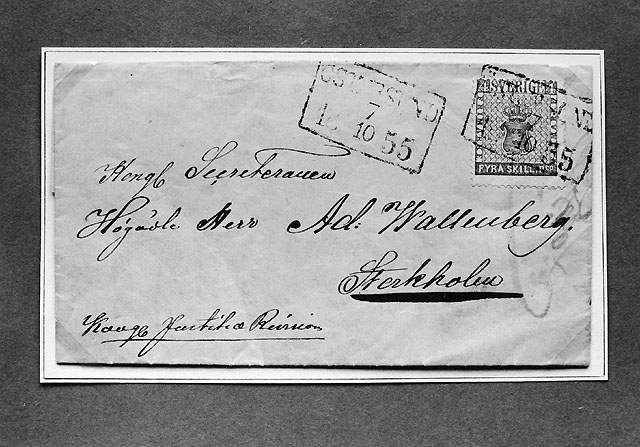 ÖSTERSUND
7
12 10 55
SVERIGE
FYRA SKILL. BCO
55
Kongl Secreteraren
Högädle Herr Ad: Wallenberg.
Stockholm
Kongl Justitiæ Revision